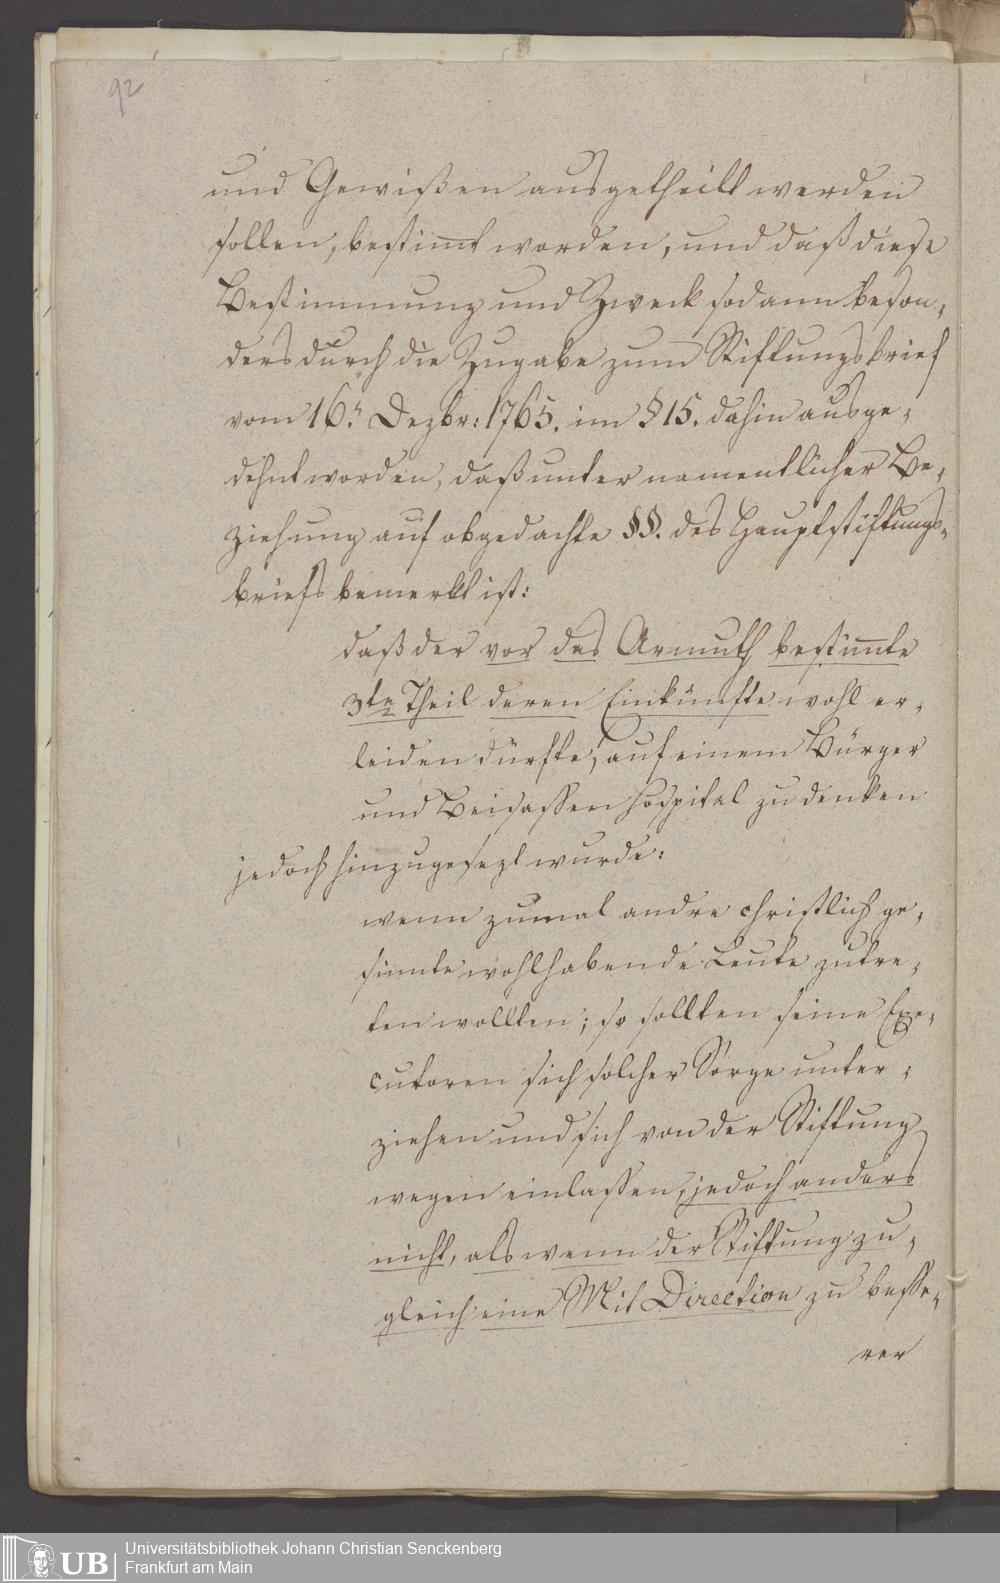 92
und Gewißen ausgetheilt werden
sollen, bestimt worden, und daß diese
Bestimmung und Zweck sodann beson„
ders durch die Zugabe zum Stiftungsbrief
vom 16n Dezbr: 1765. im § 15. dahin ausge„
dehnt worden, daß unter namentlicher Be„
ziehung auf obgedachte §§. des Hauptstiftungs„
briefs bemerkt ist:
daß der vor das Armuth bestimte
3te Theil deren Einkünfte wohl er„
leiden dürfte, auf einem Bürger
und Beisassen Hospital zu denken
jedoch hinzugesezt wurde:
wenn zumal andre christlich ge„
sinnte wohlhabende Leute zutre„
ten wollten; so sollten seine Exe„
cutoren sich solcher Sorge unter„
ziehen und sich von der Stiftung
wegen einlassen, jedoch anders
nicht, als wenn der Stiftung zu„
gleich eine Mit Direction zu besse„
rer
UB
Universitätsbibliothek Johann Christian Senckenberg
Frankfurt am Main